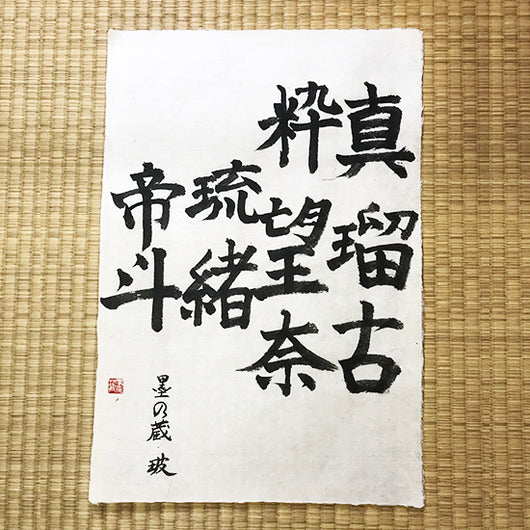 真瑠古
粋望奈
琉緒
帝斗
墨の蔵 玻